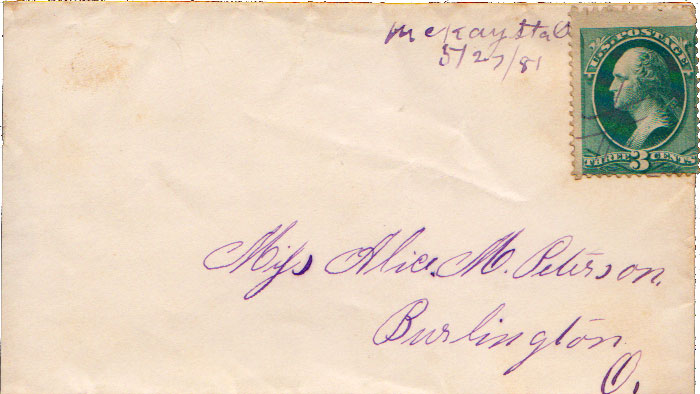 McKay Sta O
5/27/81
U.S. POSTAGE
THREE 3 CENTS
Miss Alice. M. Peterson.
Burlington
O.